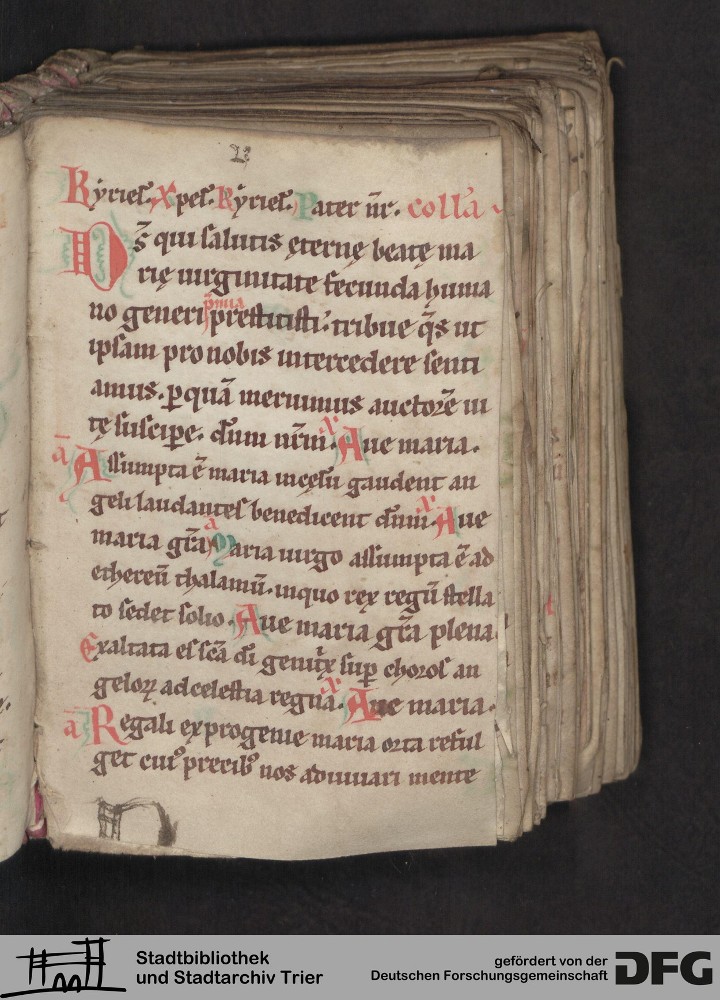 Kyriel̄. Xpel̄. Kyriel̄. Pater nr̄. coll̄a
Ds̄ qui salutis ęternę beatę ma
rię uirginitate fecunda huma
no generi p̄mia prestitisti. tribue qs̄ ut
ipsam pro nobis intercedere senti
amus. ꝑ quā meruimus auctorē ui
tę suscipe. dn̄m nr̄m. x̄ Aue maria.
ā Assumpta ē maria in celū gaudent an
geli laudantes benedicent dn̄m. x̄ Aue
maria grā ā Maria uirgo assumpta ē ad
ethereū thalamū. in quo rex regū stella
to sedet solio. Aue maria grā plena
Exaltata es scā di genitx sup choros an
geloꝝ ad celestia regna. x̄ Aue maria.
ā Regali ex progenie maria orta reful
get cui⁹ precib⁹ nos adiuuari mente
Stadtbibliothek
und Stadtarchiv Trier
gefördert von der
Deutschen Forschungsgemeinschaft
DFG